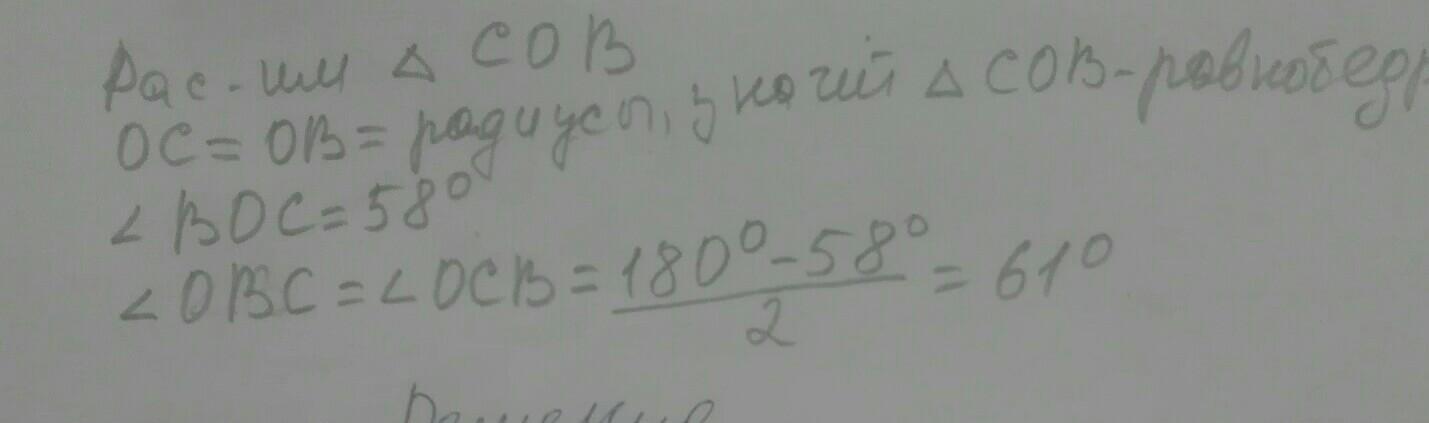 Рас-им △ COB
OC = OB = радиусы, значий △ COB-равнобедр
∠ BOC = 58°
∠ OBC = ∠ OCB = 180° - 58° / 2 = 61°